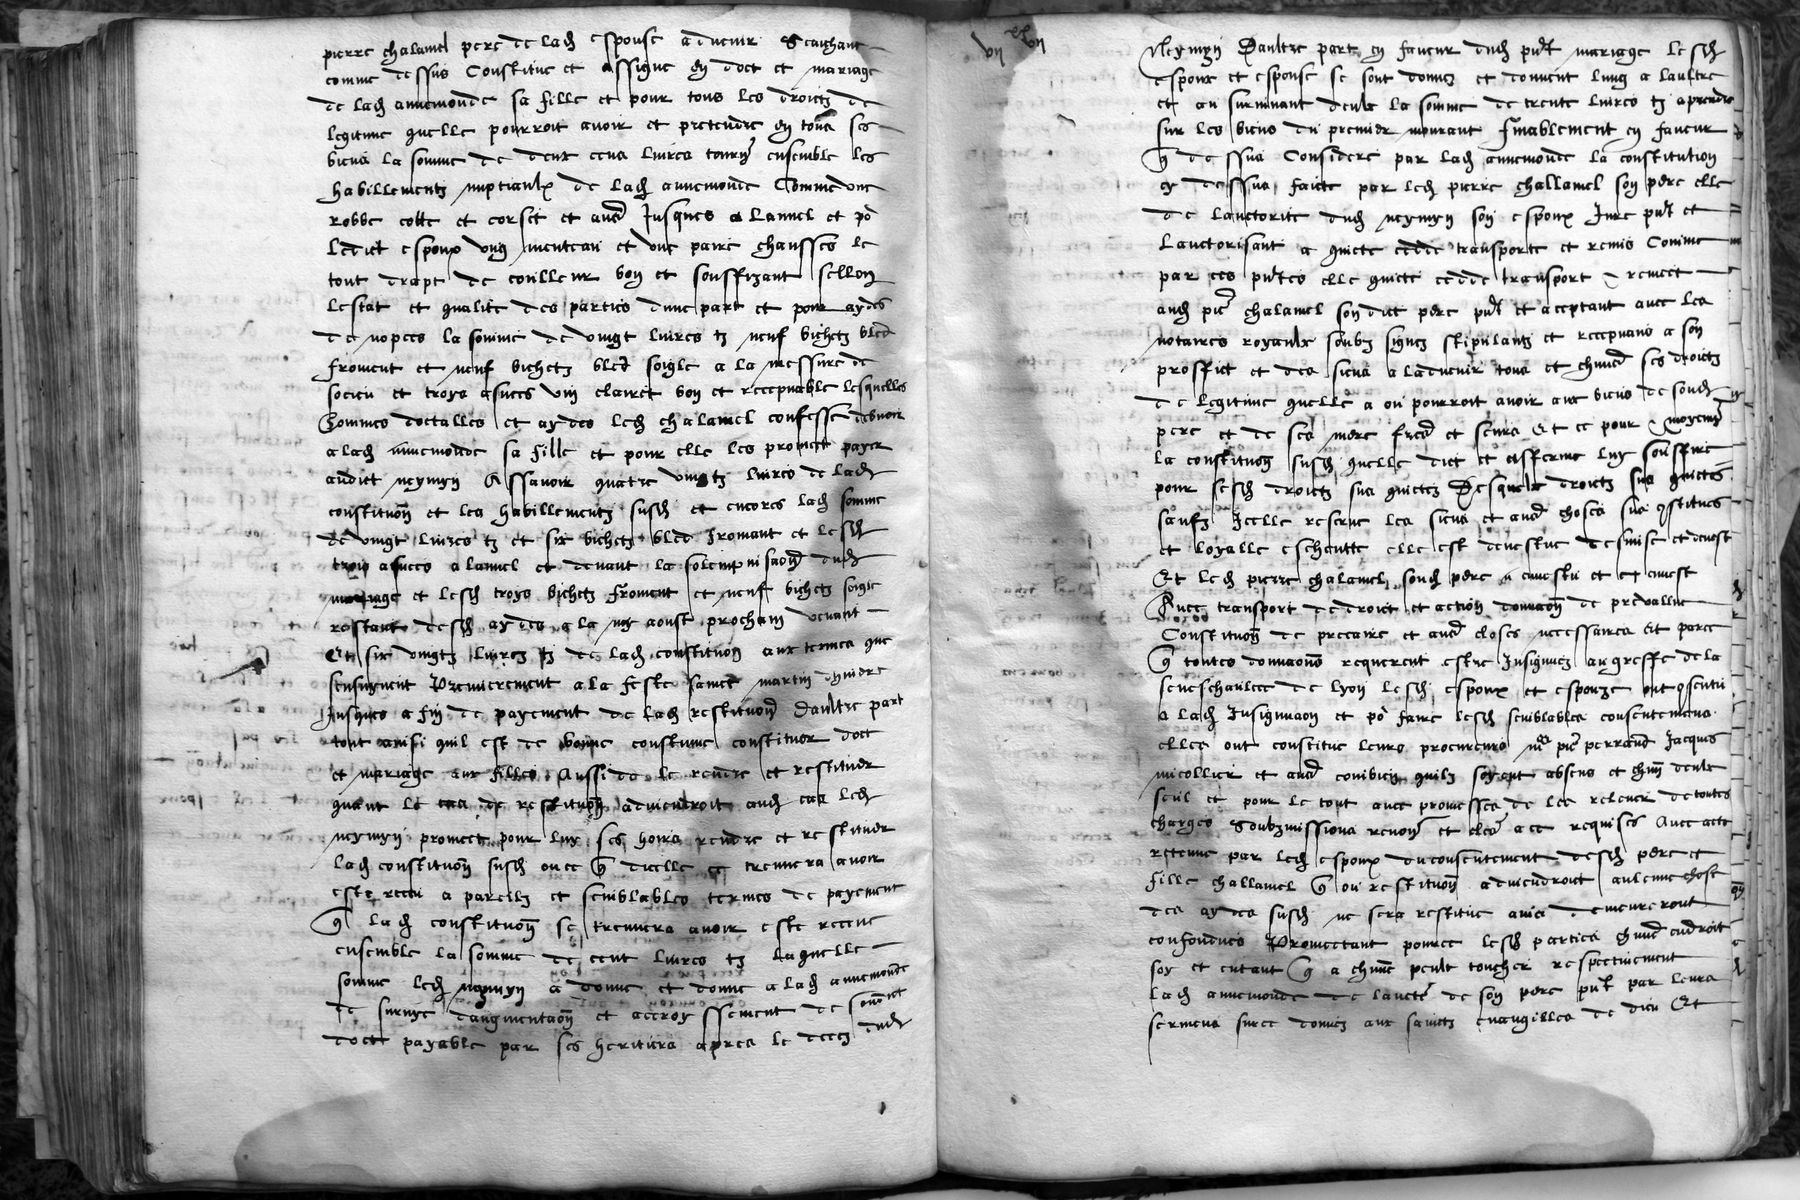 pierre chalamel pere de lad espouse advenir Scaichant
comme dessus Constitue et assigne en doct et mariage
de lad annemonde sa fille et pour tous les droictz de
legitime quelle pourroit avoir et pretendre en tous ses
biens la somme de deux cens livres tourn ensemble les
habillementz nuptiaulx de lad annemonde Comme une
robbe cotte et corset et aud Jusques a Lannel et po
ledict espoux ung menteau et une paire chausses le
tout drapt de coulleur bon et souffizant sellon
lestat et qualite des parties dune part et pour aydes
de nopces la somme de vingt livres tz neuf bichetz bled
froment et neuf bichetz bled soigle a la messure de
socieu et troys asnees vin clairet bon et recepvable lesquelles
Sommes doctalles et aydes led chalamel confesse debvoir
a lad annemonde sa fille et pour elle les promect payer
audict neymyn Assavoir quatre vingtz livres de lad
constitution et les habillementz susd et encores lad somme
de vingt livres tz et six bichetz bled fromant et lesd
trois asnees a lannel et devant la solempnisaon dud
mariage et lesd troys bichetz froment et neuf bichetz soigle
restant desd aydes a la my aoust prochain venant
Et six vingtz livres tz de lad constitution aux termes que
sensuyvent Premierement a la feste sainct martin dhivere
Jusques a fin de payement de lad restitution Daultre part
tout ainsi quil est de bonne coustume constituer doct
et mariage aux filles Aussi de le rendre et restituer
quant le cas de restitution adviendroit aud cas led
neymyn promect pour luy ses hoirs rendre et restituer
lad constitution susd avec q dicelle se treuvera avoir
este receu a pareilz et semblables termes de payement
q lad constitution se treuvera avoir este receue
ensemble la somme de cent livres tz laquelle
somme led neymyn a donne et donne a lad annemonde
de survye daugmentaon et accroyssement de sondict
doct payable par ses heritiers apres le decez dud
vii xx vii
Neymyn Daultre part en faveur dud pnt mariage lesd
espoux et espouse se sont donnez et donnent lung a laultre
et au survivant deulx la somme de trente livres tz a prendre
sur les biens du premier mourant finablement en faveur
q dessus Considere par lad annemonde la constitution
cy dessus faicte par led pierre challamel son pere elle
de lauctorite dud neymyn son espoux Icy pnt et
lauctorisant a quicte cedde transporte et remis Comme
par ces pntes elle quicte cedde transport et remect
aud pierre chalamel son dict pere pnt et acceptant avec les
notaires royaulx soubz signez stipulantz et recepvans a son
proffict et des siens a ladvenir tous et chund ses droictz
de legitime quelle a ou pourroit avoir aux biens de sond
pere et de ses mere freres et seurs Et ce pour et moyennt
la constitution susd quelle dict et afferme luy souffire
pour sesd droictz sus quictez Desquelz droictz sus quictes
saufz Icelle reserve les siens et aud choses sus constitues
et loyalle escheutte elle est devestue desmise et devest
Et led pierre chalamel sond pere a envestu et en envest
Avec transport de droict et action donnaon de prevallue
Constitution de precaire et aud closes necessaires Et parce
q toutes donnaons requerent estre Insignuez au greffe de la
seneschaulcee de lyon lesd espoux et espouze ont consenti
a lad Insignuaon et po faire lesd semblables consentemens
elles ont constitue leurs procureurs me pierre perrand Jacques
micollier et aud combien quilz soyent absens et chun deulx
seul et pour le tout avec promesses de les relever de toutes
charges Soubzmissions renon et clos a ce requises Avec acte
retenue par led espoux du consentement desd pere et
fille challamel q ou restitution adviendroit aulcune chose
des aydes susd ne sera restitue ains demeureront
confondues Promectant pource lesd parties chund endroit
soy et entant q a chune peult toucher respectivement
lad annemonde de laucte de son pere pnt par leurs
sermens surce donnez aux sainctz evangilles de dieu Et